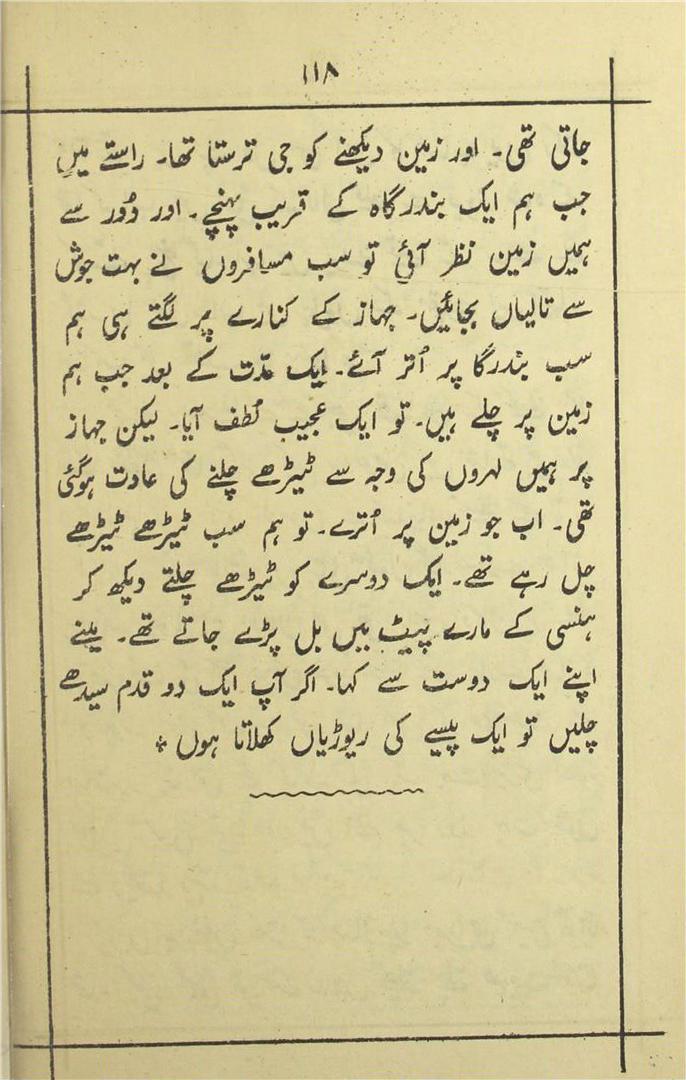 ۱۱۸
جاتی تھی۔ اور زمین دیکھنے کو جی ترستا تھا۔ راستے میں
جب ہم ایک بندرگاہ کے قریب پہنچے۔ اور دُور سے
ہمیں زمین نظر آئی تو سب مسافروں نے بہت جوش
سے تالیاں بجائیں۔ جہاز کے کنارے پر لگتے ہی ہم
سب بندرگا پر اُتر آئے۔ ایک مدّت کے بعد جب ہم
زمین پر چلے ہیں۔ تو ایک عجیب لُطف آیا۔ لیکن جہاز
پر ہمیں لہروں کی وجہ سے ٹیڑھے چلنے کی عادت ہوگئی
تھی۔ اب جو زمین پر اُترے۔ تو ہم سب ٹیڑھے ٹیڑھے
چل رہے تھے۔ ایک دوسرے کو ٹیڑھے چلتے دیکھ کر
ہنسی کے مارے پیٹ میں بل پڑے جاتے تھے۔ مینے
اپنے ایک دوست سے کہا۔ اگر آپ ایک دو قدم سیدھے
چلیں تو ایک پیسے کی ریوڑیاں کھلاتا ہوں *